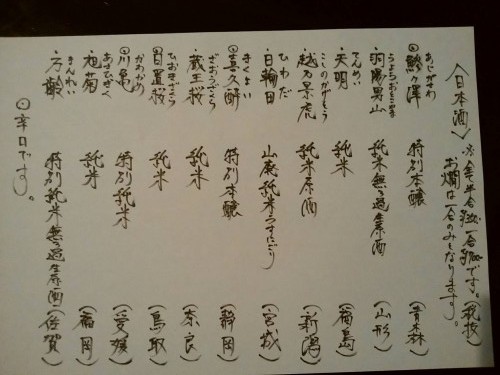 〈日本酒〉※全て半合 一合 です。(税抜)
お燗は一合のみとなります。
あじがさわ
⊙鯵ヶ澤 特別本醸 (青森)
うようおとこやま
・羽陽男山 純米無ろ過生原酒 (山形)
てんめい
・天明 純米 (福島)
こしのかげとら
・越乃景虎 純米原酒 (新潟)
ひわだ
・日輪田 山廃純米うすにごり (宮城)
きくよい
⊙喜久酔 特別本醸 (静岡)
ざおうざくら
・蔵王桜 純米 (奈良)
ひおきざくら
⊙日置桜 純米 (鳥取)
かわかめ
⊙川亀 特別純米 (愛媛)
あさひぎく
・旭菊 純米 (福岡)
まんれい
・万齢 特別純米無ろ過生原酒 (佐賀)
⊙辛口です。